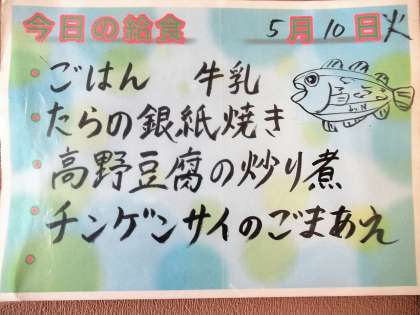 今日の給食 5月10日火
・ごはん 牛乳
・たらの銀紙焼き
・高野豆腐の炒り煮
・チンゲンサイのごまあえ
・